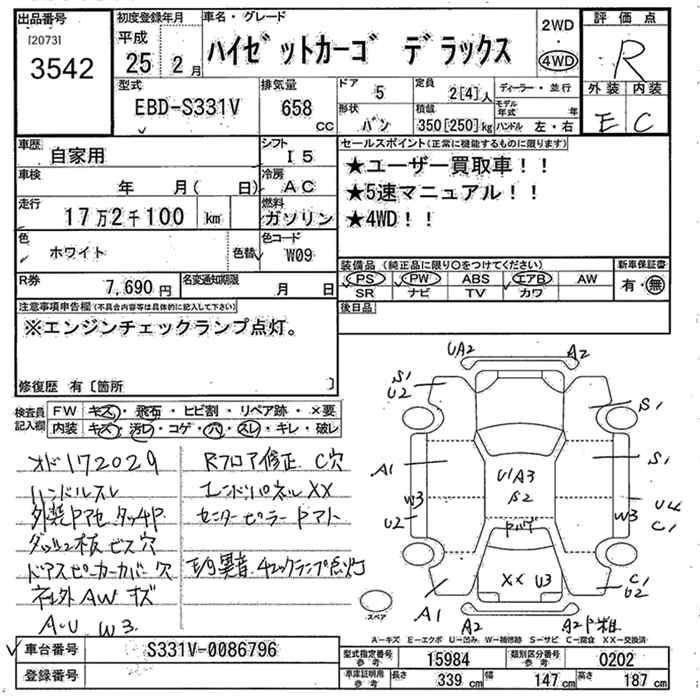 出品番号
[2073]
3542
初度登録年月
平成
25 2月
車名・グレード
ハイゼットカーゴ デラックス
2WD
・
4WD
評価点
R
外装 内装
E C
型式
EBD-S331V
排気量
658
CC
ドア
5
定員
2[4]人
ディーラー・並行
モデル年式 年
形状
バン
積載
350[250]kg
ハンドル 左・右
車歴
自家用
シフト
I5
車検
年 月( 日)
冷房
AC
走行
17万2千100 km
燃料
ガソリン
色
ホワイト
色替
色コード
W09
R券
7,690円
名変通知期限
月 日
セールスポイント(正常に機能するものに限ります)
★ユーザー買取車!!
★5速マニュアル!!
★4WD!!
装備品(純正品に限り○をつけてください)
新車保証書
PS PW ABS エアB AW
SR ナビ TV カワ
有・無
後日品
注意事項申告欄(不具合内容等は具体的に記入して下さい)
※エンジンチェックランプ点灯。
修復歴 有〔箇所 〕
検査員記入欄
FW キズ・飛石・ヒビ割・リペア跡・×要
内装 キズ・汚レ・コゲ・穴・スレ・キレ・破レ
メド172029
ハンドルスレ
外装Pアセ タッチP
ダッシュ板ビス穴
ドアスピーカーカバー穴
社外AW キズ
A・U W3
Rフロア修正 C穴
エンドパネルXX
センターピラー Pアト
異音 チェックランプ点灯
UA2 A2
S1
U2
S1
A1
S1
U1A3
S2
W3
U2
W3
U4
C1
XX U3
A1
C1
U2
A2
A2
スペア
A-キズ E-エクボ U-凹み W-補修跡 S-サビ C-腐食 XX-交換済
車台番号
S331V-0086796
登録番号
型式指定番号
参考
15984
類別区分番号
参考
0202
車庫証明用
参考
長さ 339 cm
幅 147 cm
高さ 187 cm